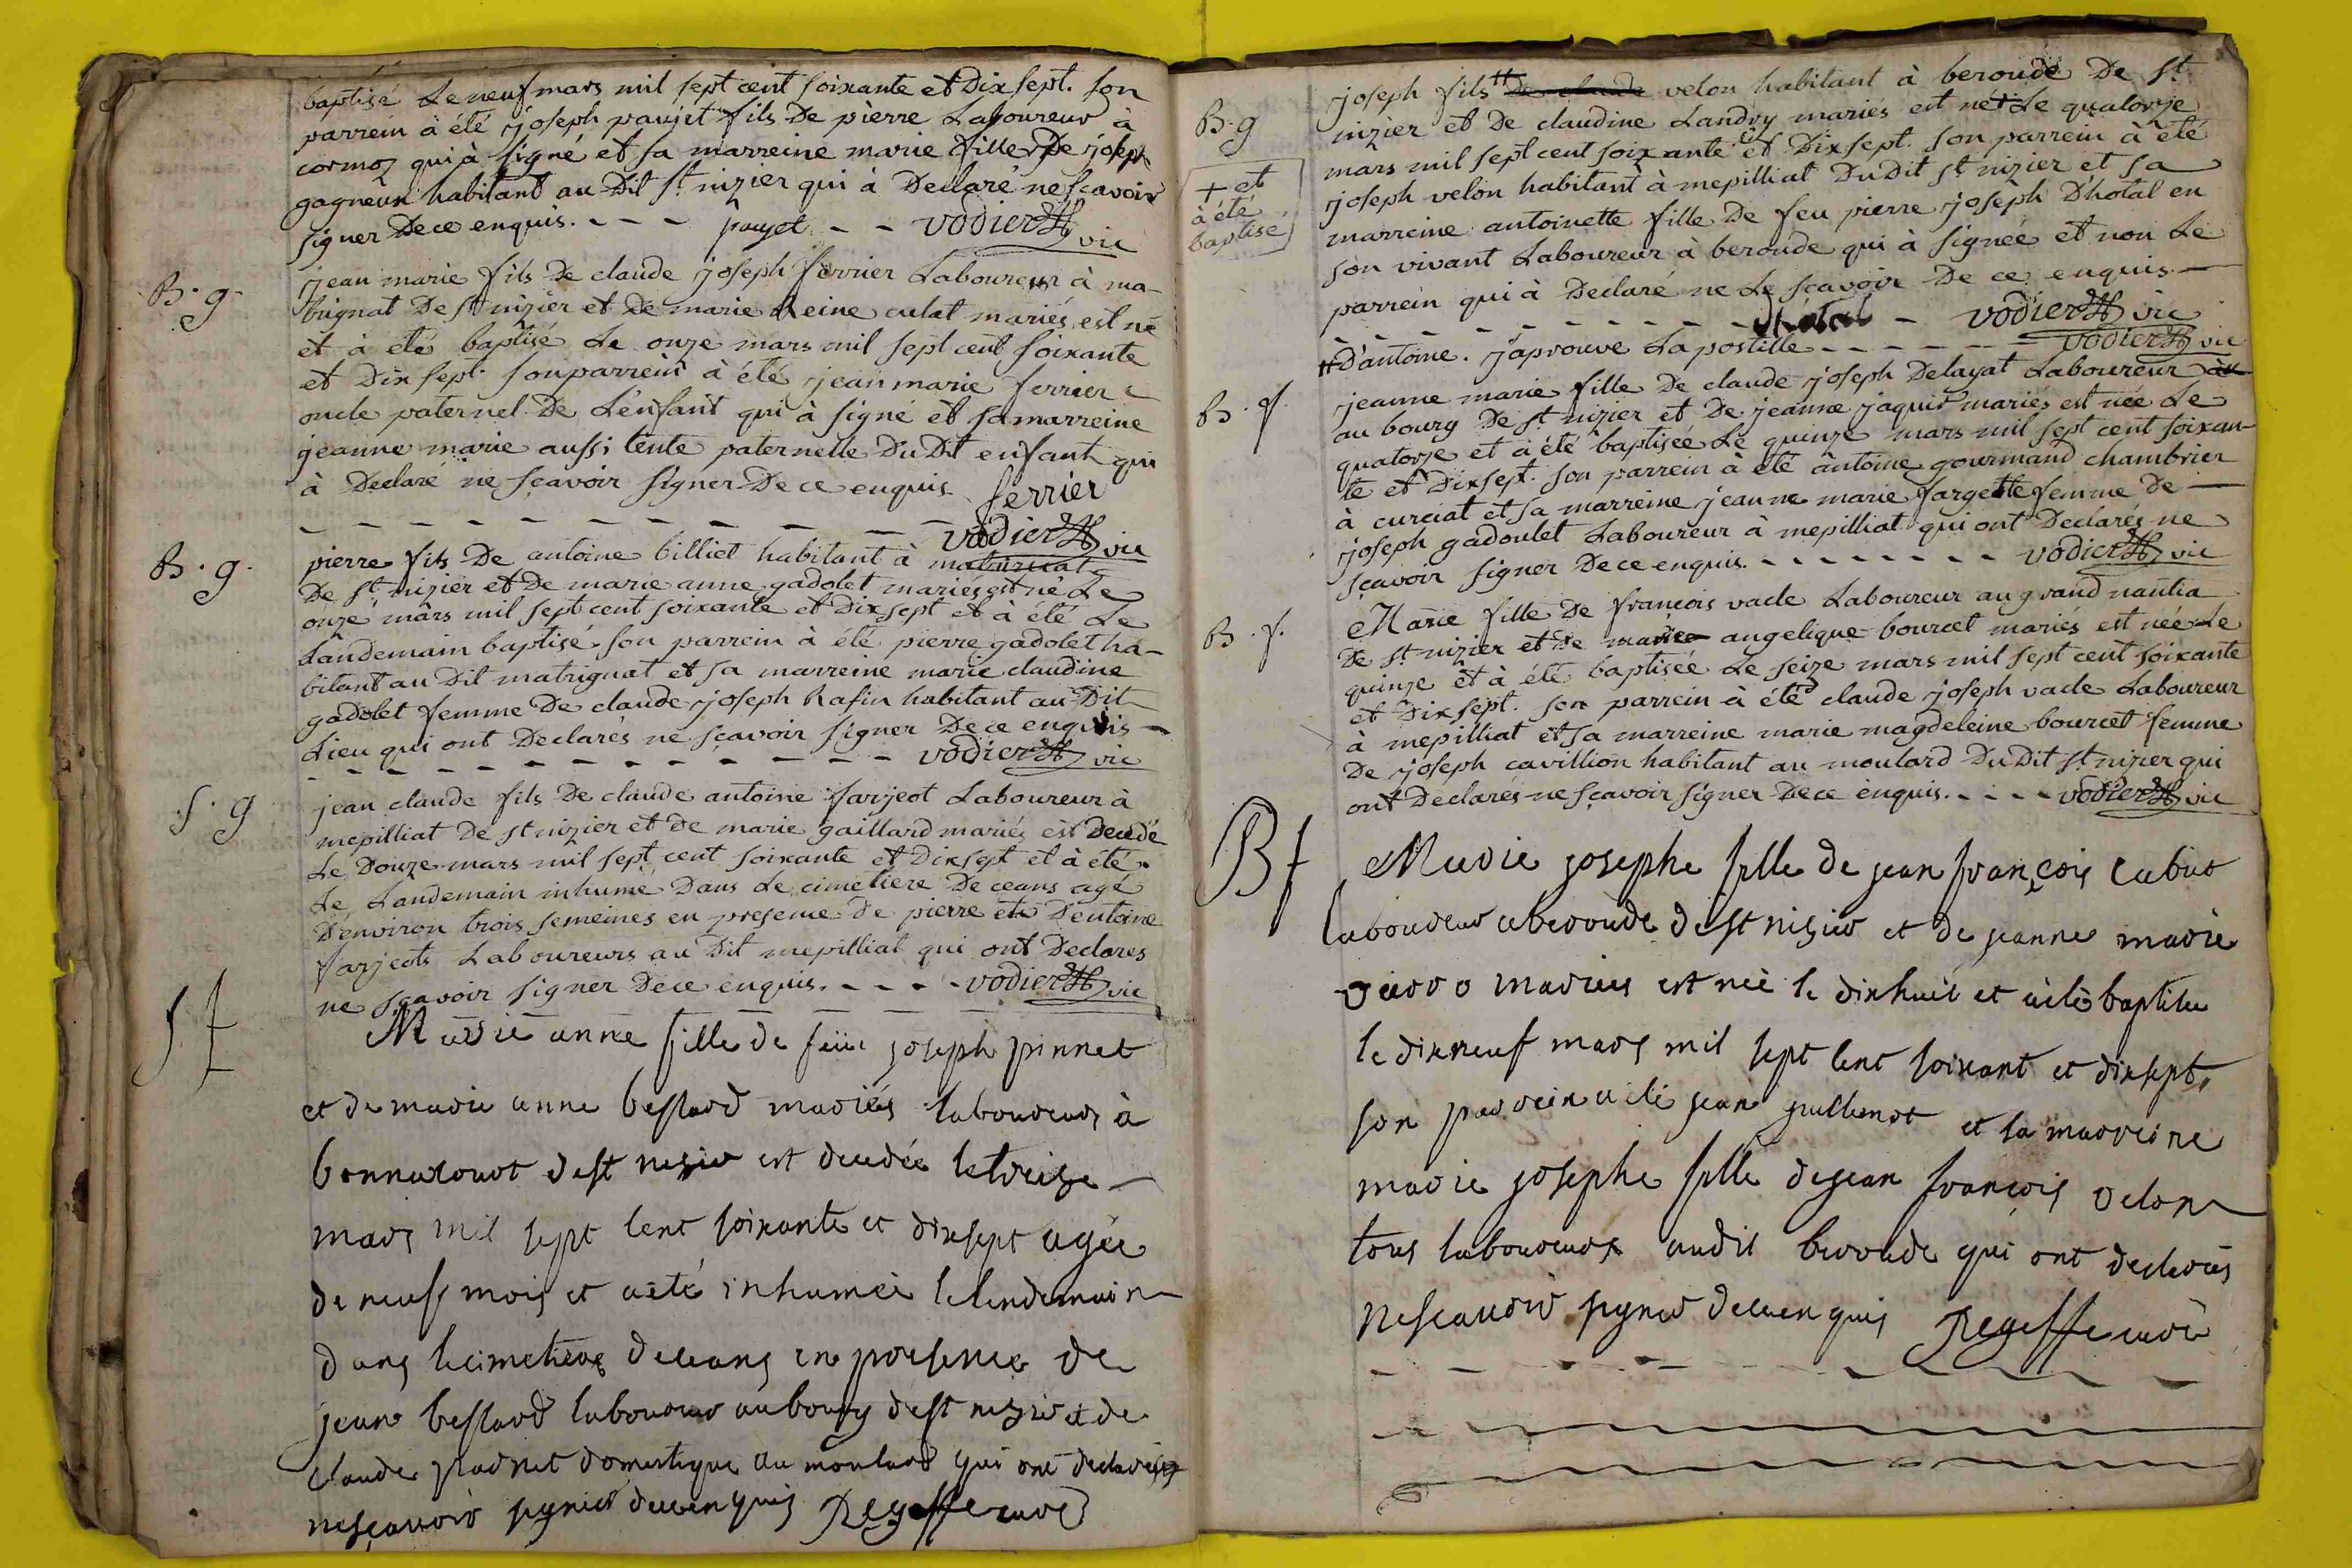 baptisé Le neuf mars mil sept cent soixante et Dix sept. son
parrein à été joseph paujet fils De pierre Laboureur à
cormoz qui à signé et sa marreine marie fille De joseph
gagneux habitant au Dit St. nizier qui à Declaré ne sçavoir
signer De ce enquis. - - - paujet - - vodier vic
B. g. jean marie fils De claude joseph ferrier Laboureur à ma-
trignat De St nizier et De marie Reine culat mariés est né
et à été baptisé Le onze mars mil sept cent soixante
et Dix sept. son parrein à été jean marie ferrier
oncle paternel De L'enfant qui à signé et sa marreine
jeanne marie aussi tente paternelle Du Dit enfant qui
à Declaré ne sçavoir signer De ce enquis. ferrier
- - - - - - - - - - vodier vic
B. g. pierre fils De antoine billiet habitant à
De St. nizier et De marie anne gadolet mariés est né Le
onze mars mil sept cent soixante et Dix sept et à été Le
Landemain baptisé. son parrein à été pierre gadolet ha-
bitant au Dit matrignat et sa marreine marie claudine
gadolet femme De claude joseph Rafin habitant au Dit
Lieu qui ont Declarés ne sçavoir signer De ce enquis -
- - - - - - - - - - - vodier vic
S. g jean claude fils De claude antoine farjeot Laboureur à
mepilliat De St nizier et De marie gaillard mariés est Decedé
Le Douze mars mil sept cent soixante et Dix sept et à été
Le Landemain inhumé Dans Le cimetiere De ceans agé
D'environ trois semeines en presence De pierre et D'entoine
farjeots Laboureurs au Dit mepilliat qui ont Declares
ne sçavoir signer De ce enquis. - - - - vodier vic
S f Marie anne fille de feüe joseph pinnet
et de marie anne bestard mariés laboureurs à
dest nisier est decedée le treize
mars mil sept cent soixante et dix sept agée
de neuf mois et a été inhumée le lendemain
dans le cimetiere de ceans en presence de
jean bestard laboureur au bourg dest nizier et de
claude domestique au moulard qui ont declarés
ne sçavoir signer de ce enquis Regeffe curé
B. g joseph fils ++ De claude velon habitant à beroude De St
nizier et De claudine Landry mariés est né + Le quatorze
mars mil sept cent soixante et Dix sept. son parrein à été
+ et
à été
baptisé
joseph velon habitant à mepilliat Du Dit St nizier et sa
marreine antoinette fille De feu pierre joseph D'hotal en
son vivant Laboureur à beroude qui à signée et non Le
parrein qui à Declaré ne Le sçavoir De ce enquis -
- - - - - - - - D'hotal - vodier vic
++ D'antoine. j'aprouve L'apostille - - - - - vodier vic
B. f. jeanne marie fille De claude joseph Delayat Laboureur
au bourg De St nizier et De jeanne jaquis mariés est née Le
quatorze et à été baptisée Le quinze mars mil sept cent soixan-
te et Dix sept. son parrein à été antoine gourmand chambrier
à curciat et sa marreine jeanne marie fargette femme De -
joseph gadoulet Laboureur à mepilliat qui ont Declarés ne
sçavoir signer De ce enquis. - - - - - - - vodier vic
B. f. Marie fille De francois vacle Laboureur au grand nantia
De St. nizier et De marie angelique bourcet mariés est née Le
quinze et à été baptisée Le seize mars mil sept cent soixante
et Dix sept. son parrein à été claude joseph vacle Laboureur
à mepilliat et sa marreine marie magdeleine bourcet femme
De joseph cavillion habitant au moulard Du Dit St nizier qui
ont Declarés ne sçavoir signer De ce enquis. - - - - vodier vic
B f Marie josephe fille de jean françois
laboureur a beroude dest nisier et de jeanne marie
mariés est née le dixhuit et a été baptisée
le dixneuf mars mil sept cent soixant et dixsept,
son parrein a été jean guillemot et sa marreine
marie josephe fille de jean françois velon
tous laboureurs audit beroude qui ont declarés
ne scavoir signer de ce enquis Regeffe curé